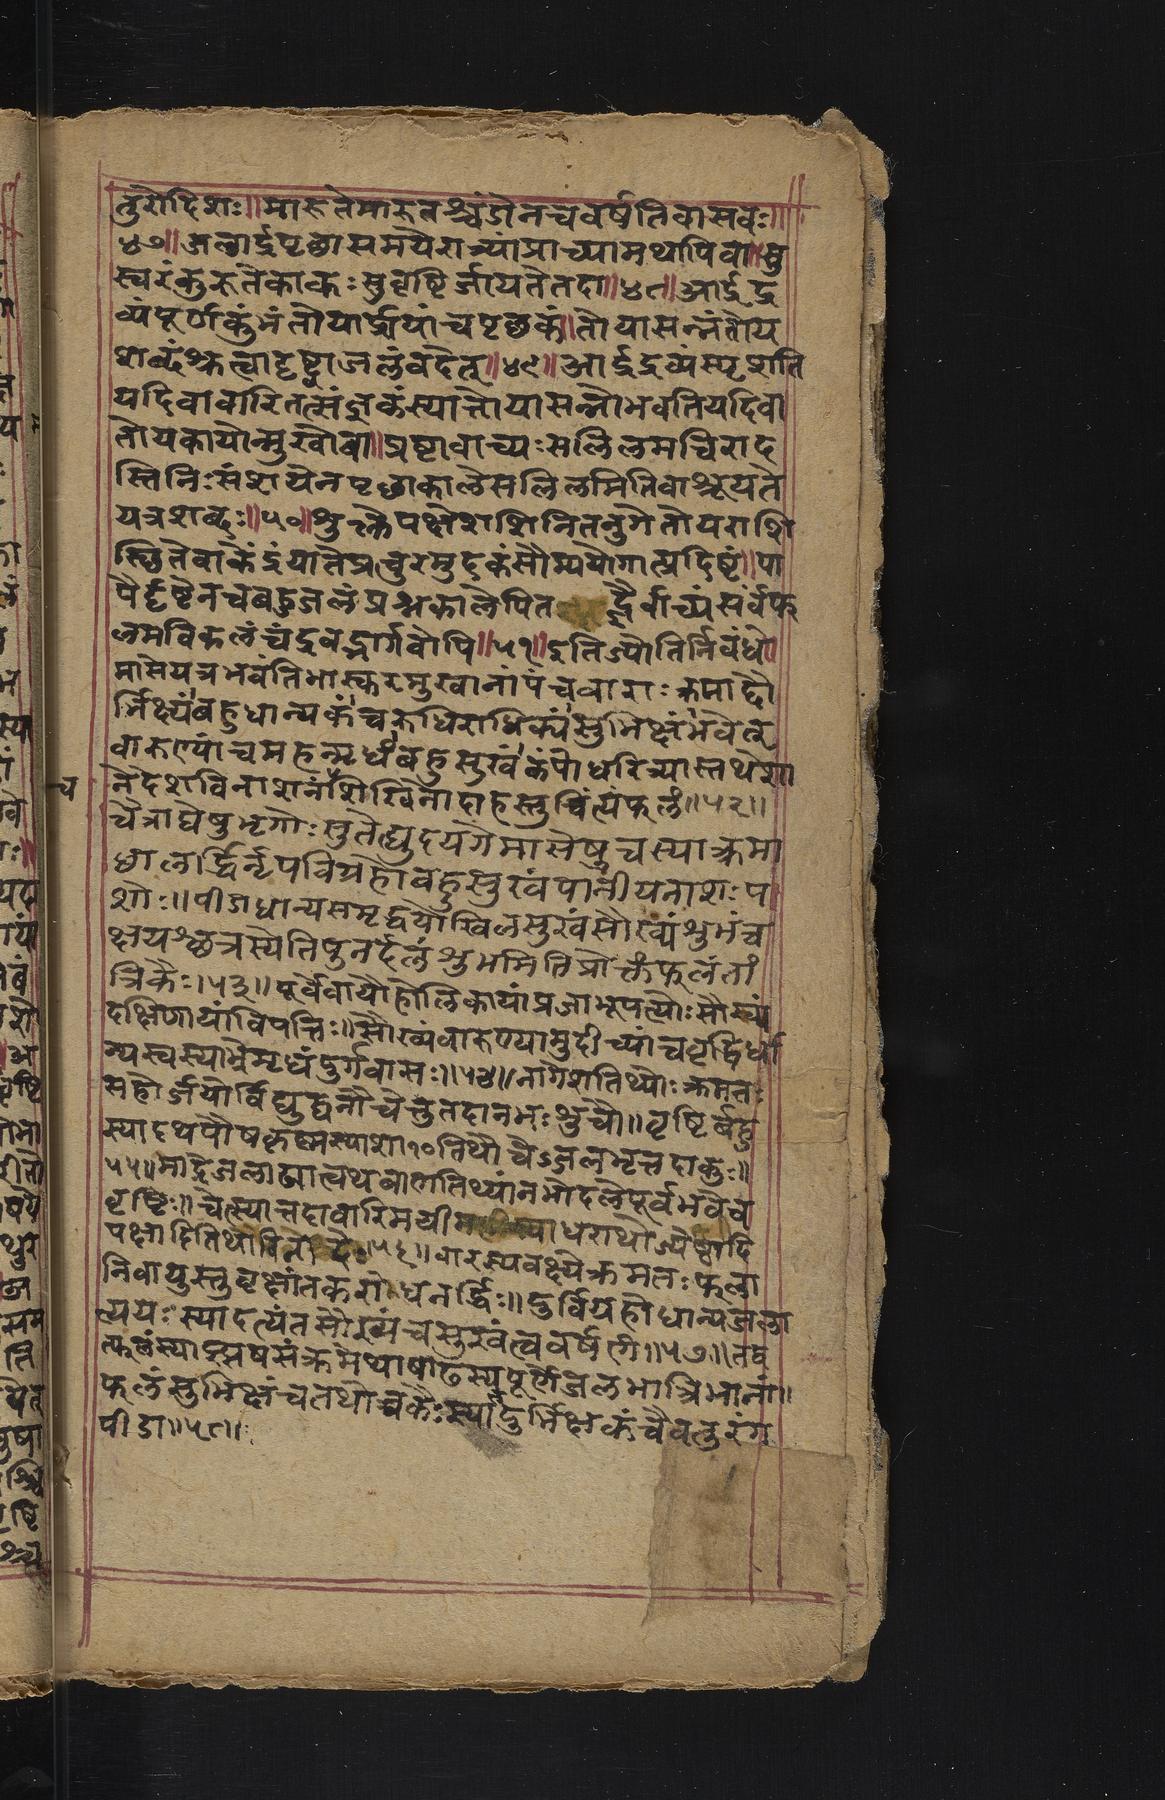 तुरोदिशः॥मारुतेमारुतश्चंडोनचवर्षतिवासवः॥
४७॥जलार्द्रपृछासमयेराज्यांप्राच्यामथापिवा॥सु
स्वरंकुरुतेकाकःसुवृष्टिर्जायतेतदा॥४८॥आर्द्रद्र
व्यंपूर्णकुंभंतोयार्द्रायांचपृछकं॥तोयासन्नंतोय
शब्दंश्रुत्वादृष्ट्वाजलंवदेत्॥४९॥आर्द्रद्रव्यंस्पृशति
यदिवावारितत्संज्ञकंस्यात्तोयासन्नोभवतियदिवा
तोयकायोन्मुखोवा॥प्रष्टावाच्यःसलिलमचिराद
स्तिनिःसंशयेनपृछाकालेसलिलमितिवाश्रूयते
यत्रशब्दः॥५०॥शुक्लेपक्षेशशिनितनुगेतोयराशि
स्छितेवाकेंद्रंयातेप्रचुरमुदकंसौम्ययोगात्प्रदिष्टं॥पा
पैर्दृष्टेनचबहुजलंप्रश्नकालेपित द्वैर्वाच्यंसर्वफ
लमविकलंचंद्रवद्भार्गवोपि॥५१॥इतिज्योतिर्निबंधे
मासेयत्रभवंतिभास्करमुखानांपंचवाराःक्रमाद्दौ
र्भिक्ष्यंबहुधान्यकंचरुधिराधिक्यंसुभिक्षंभवेत्
वारुण्यांचमहन्मृधंबहुसुखंकंपोधरित्र्यास्तथेशा
च नेदेशविनाशनंशिखिनोदाहस्तुचिंत्यंफलं॥५२॥
चैत्राद्येषुभृगोःसुतेद्युदयगेमासेषुचस्याक्रमा
ध्धालार्द्धिर्नृपविग्रहोबहुसुखंपानीयनाशःप
शोः॥पीडाधान्यसमृद्धयोखिलसुखंसौख्यंशुभंच
क्षयश्छत्रस्येतिपुनर्दलंशुभमितिप्रोक्तंफलंतां
त्रिकैः॥५३॥पूर्वेवायौहोलिकायांप्रजाभूपत्योःसौख्यं
दक्षिणायांविपत्तिः॥सौख्यंवारुण्यामुदीच्यांचवृद्धिर्धा
न्यस्वस्याभ्रेमृधंदुर्गवासः॥५४॥नागेशतिथ्योःक्रमतः
सहोर्जयोर्विद्युद्घनौचेत्तुतदानभःशुचौ॥वृष्टिर्बहु
स्यादथपौषकृष्णस्याशा१०तिथौचेज्जलभृत्तदाकुः॥
५५॥माद्रेजलाढ्यात्वथवा तिथ्यांनभोदलेपूर्वभवैव
वृष्टिः॥चेत्स्यात्तदावारिमयी धराथोज्येष्ठादि
पक्षादितिथौ ॥५६॥वारस्यवक्ष्येक्रमतःफला
निवायुस्तुवृक्षांतकरोधनर्द्धिः॥दुर्विग्रहोधान्यजला
त्ययःस्यादत्यंतसौख्यंचसुखंत्ववर्षणे॥५७॥तद्व
त्फलंस्याद्झषसंक्रमेथाषाढस्यपूर्णेजलभात्रिभानां॥
फलंसुभिक्षंचतथोच्चकैःस्याद्दुर्भिक्षकंचैवतुरंग
पीडा॥५८॥